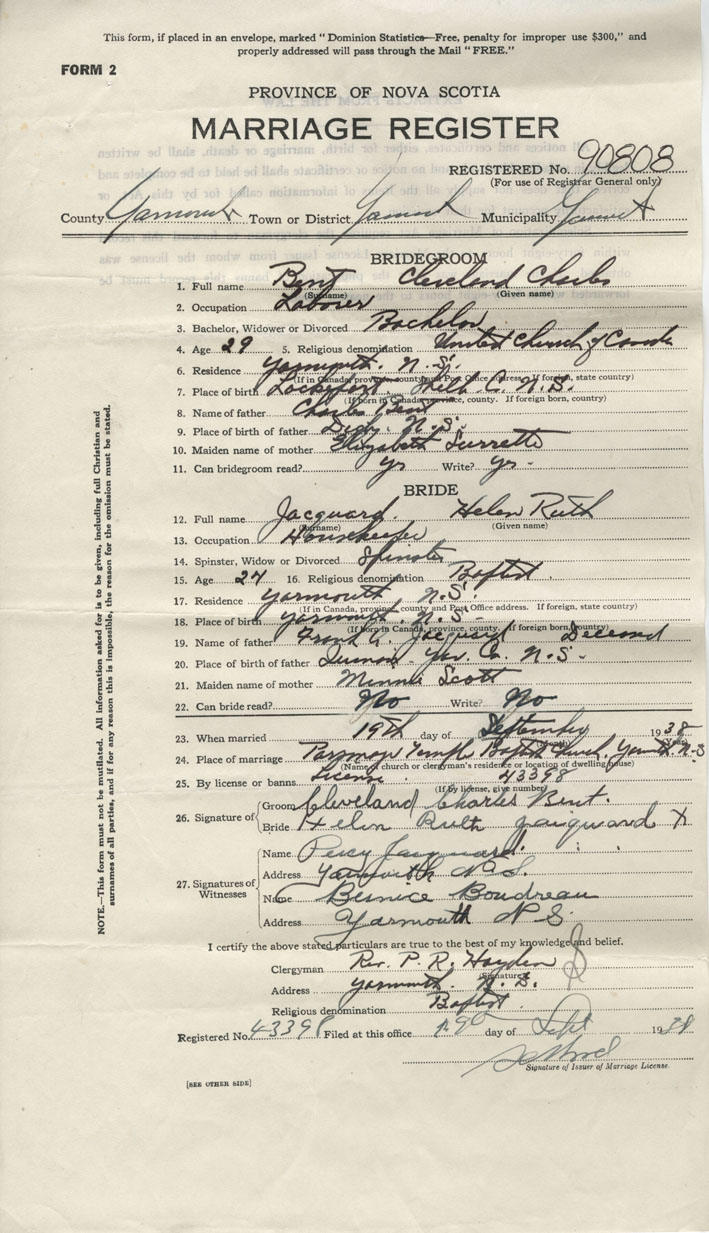 This form, if placed in an envelope, marked "Dominion Statistics—Free, penalty for improper use $300," and
properly addressed will pass through the Mail "FREE."
FORM 2
PROVINCE OF NOVA SCOTIA
MARRIAGE REGISTER
REGISTERED No. 90808
(For use of Registrar General only)
County Yarmouth Town or District Yarmouth Municipality Yarmouth
BRIDEGROOM
1. Full name Bent Cleveland Charles
(Surname) (Given name)
2. Occupation Laborer
3. Bachelor, Widower or Divorced Bachelor
4. Age 29 5. Religious denomination United Church of Canada
6. Residence Yarmouth. N.S.
(If in Canada, province, county and Post Office address. If foreign, state country)
7. Place of birth Lockeport, Shelb. C. N.S.
(If born in Canada, province, county. If foreign born, country)
8. Name of father Charles Bent
9. Place of birth of father Digby N.S.
10. Maiden name of mother Elizabeth Surrette
11. Can bridegroom read? yes Write? yes -
BRIDE
12. Full name Jacquard. Helen Ruth
(Surname) (Given name)
13. Occupation Housekeeper
14. Spinster, Widow or Divorced Spinster
15. Age 24 16. Religious denomination Baptist.
17. Residence Yarmouth N.S.
(If in Canada, province, county and Post Office address. If foreign, state country)
18. Place of birth Yarmouth. N.S.-
(If born in Canada, province, county. If foreign born, country)
19. Name of father Frank A. Jacquard Deceased
20. Place of birth of father Quinan Yar. Co. N.S-
21. Maiden name of mother Minnie Scott
22. Can bride read? No Write? No
23. When married 19th day of September 1938
24. Place of marriage Temple Baptist Church, Yarmouth. N.S
(Name of church or clergyman's residence or location of dwelling house)
25. By license or banns License 43398
(If by license, give number)
26. Signature of Groom Cleveland Charles Bent.
Bride Helen Ruth Jacquard X
27. Signatures of Witnesses
Name Percy Jacquard
Address Yarmouth N.S.
Name Bernice Boudreau
Address Yarmouth N S.
I certify the above stated particulars are true to the best of my knowledge and belief.
Clergyman Rev. P. R. Hayden
(Signature)
Address Yarmouth. N.S.
Religious denomination Baptist.
Registered No. 43398 Filed at this office day of Sept 1938
Signature of Issuer of Marriage License.
[SEE OTHER SIDE]
NOTE.—This form must not be mutilated. All information asked for is to be given, including full Christian and
surnames of all parties, and if for any reason this is impossible, the reason for the omission must be stated.